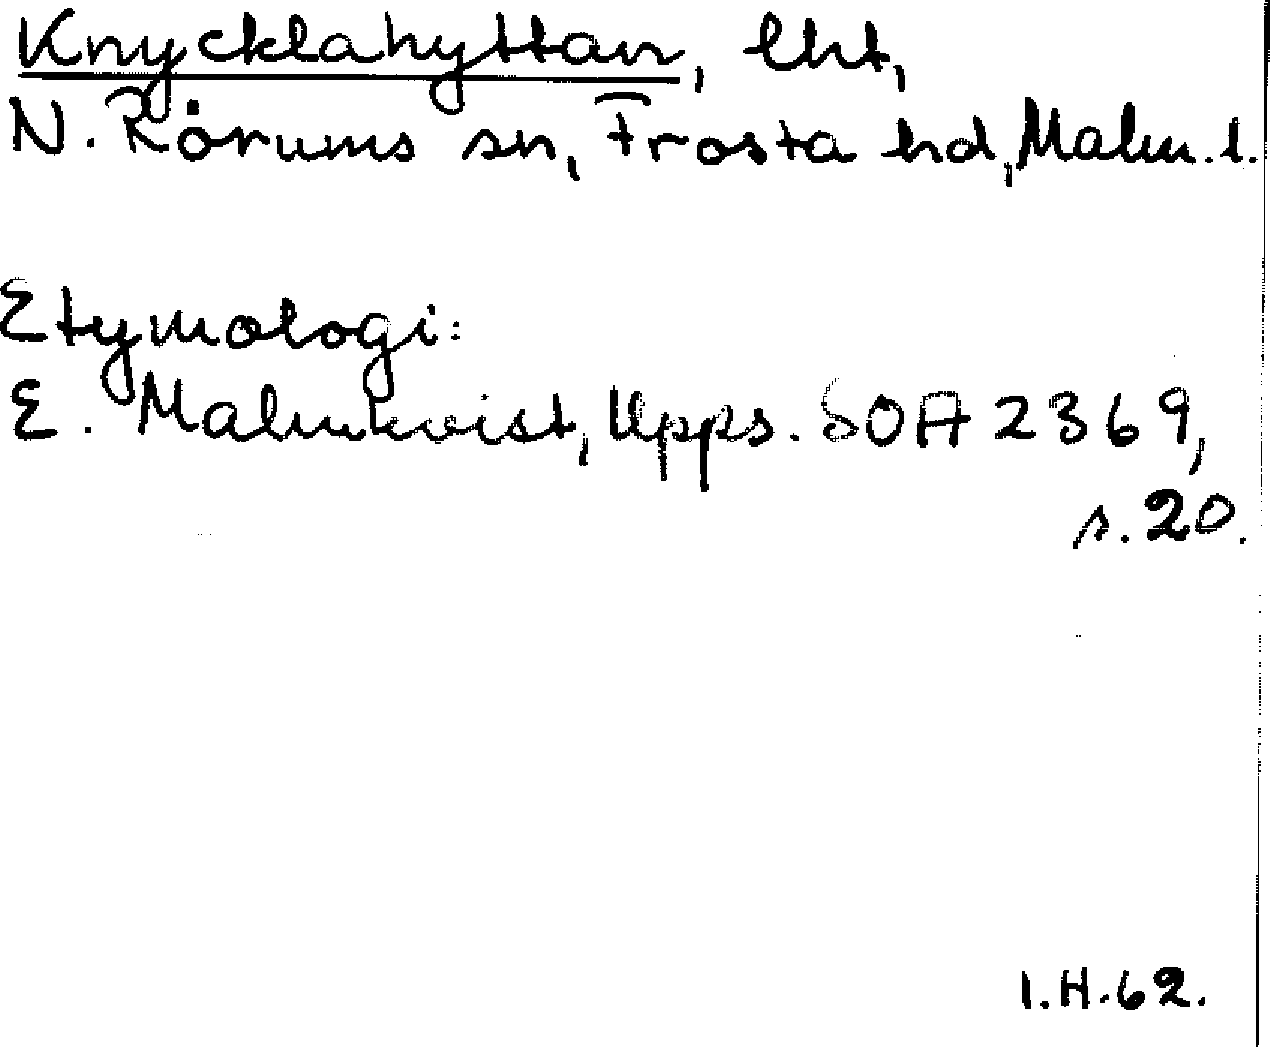 Knycklahyttan, lht,
N. Rörums sn, Frosta hd, Malm. l.
Etymologi:
E. Malmkvist, Upps. SOA 2369,
s. 20.
I.H. 62.